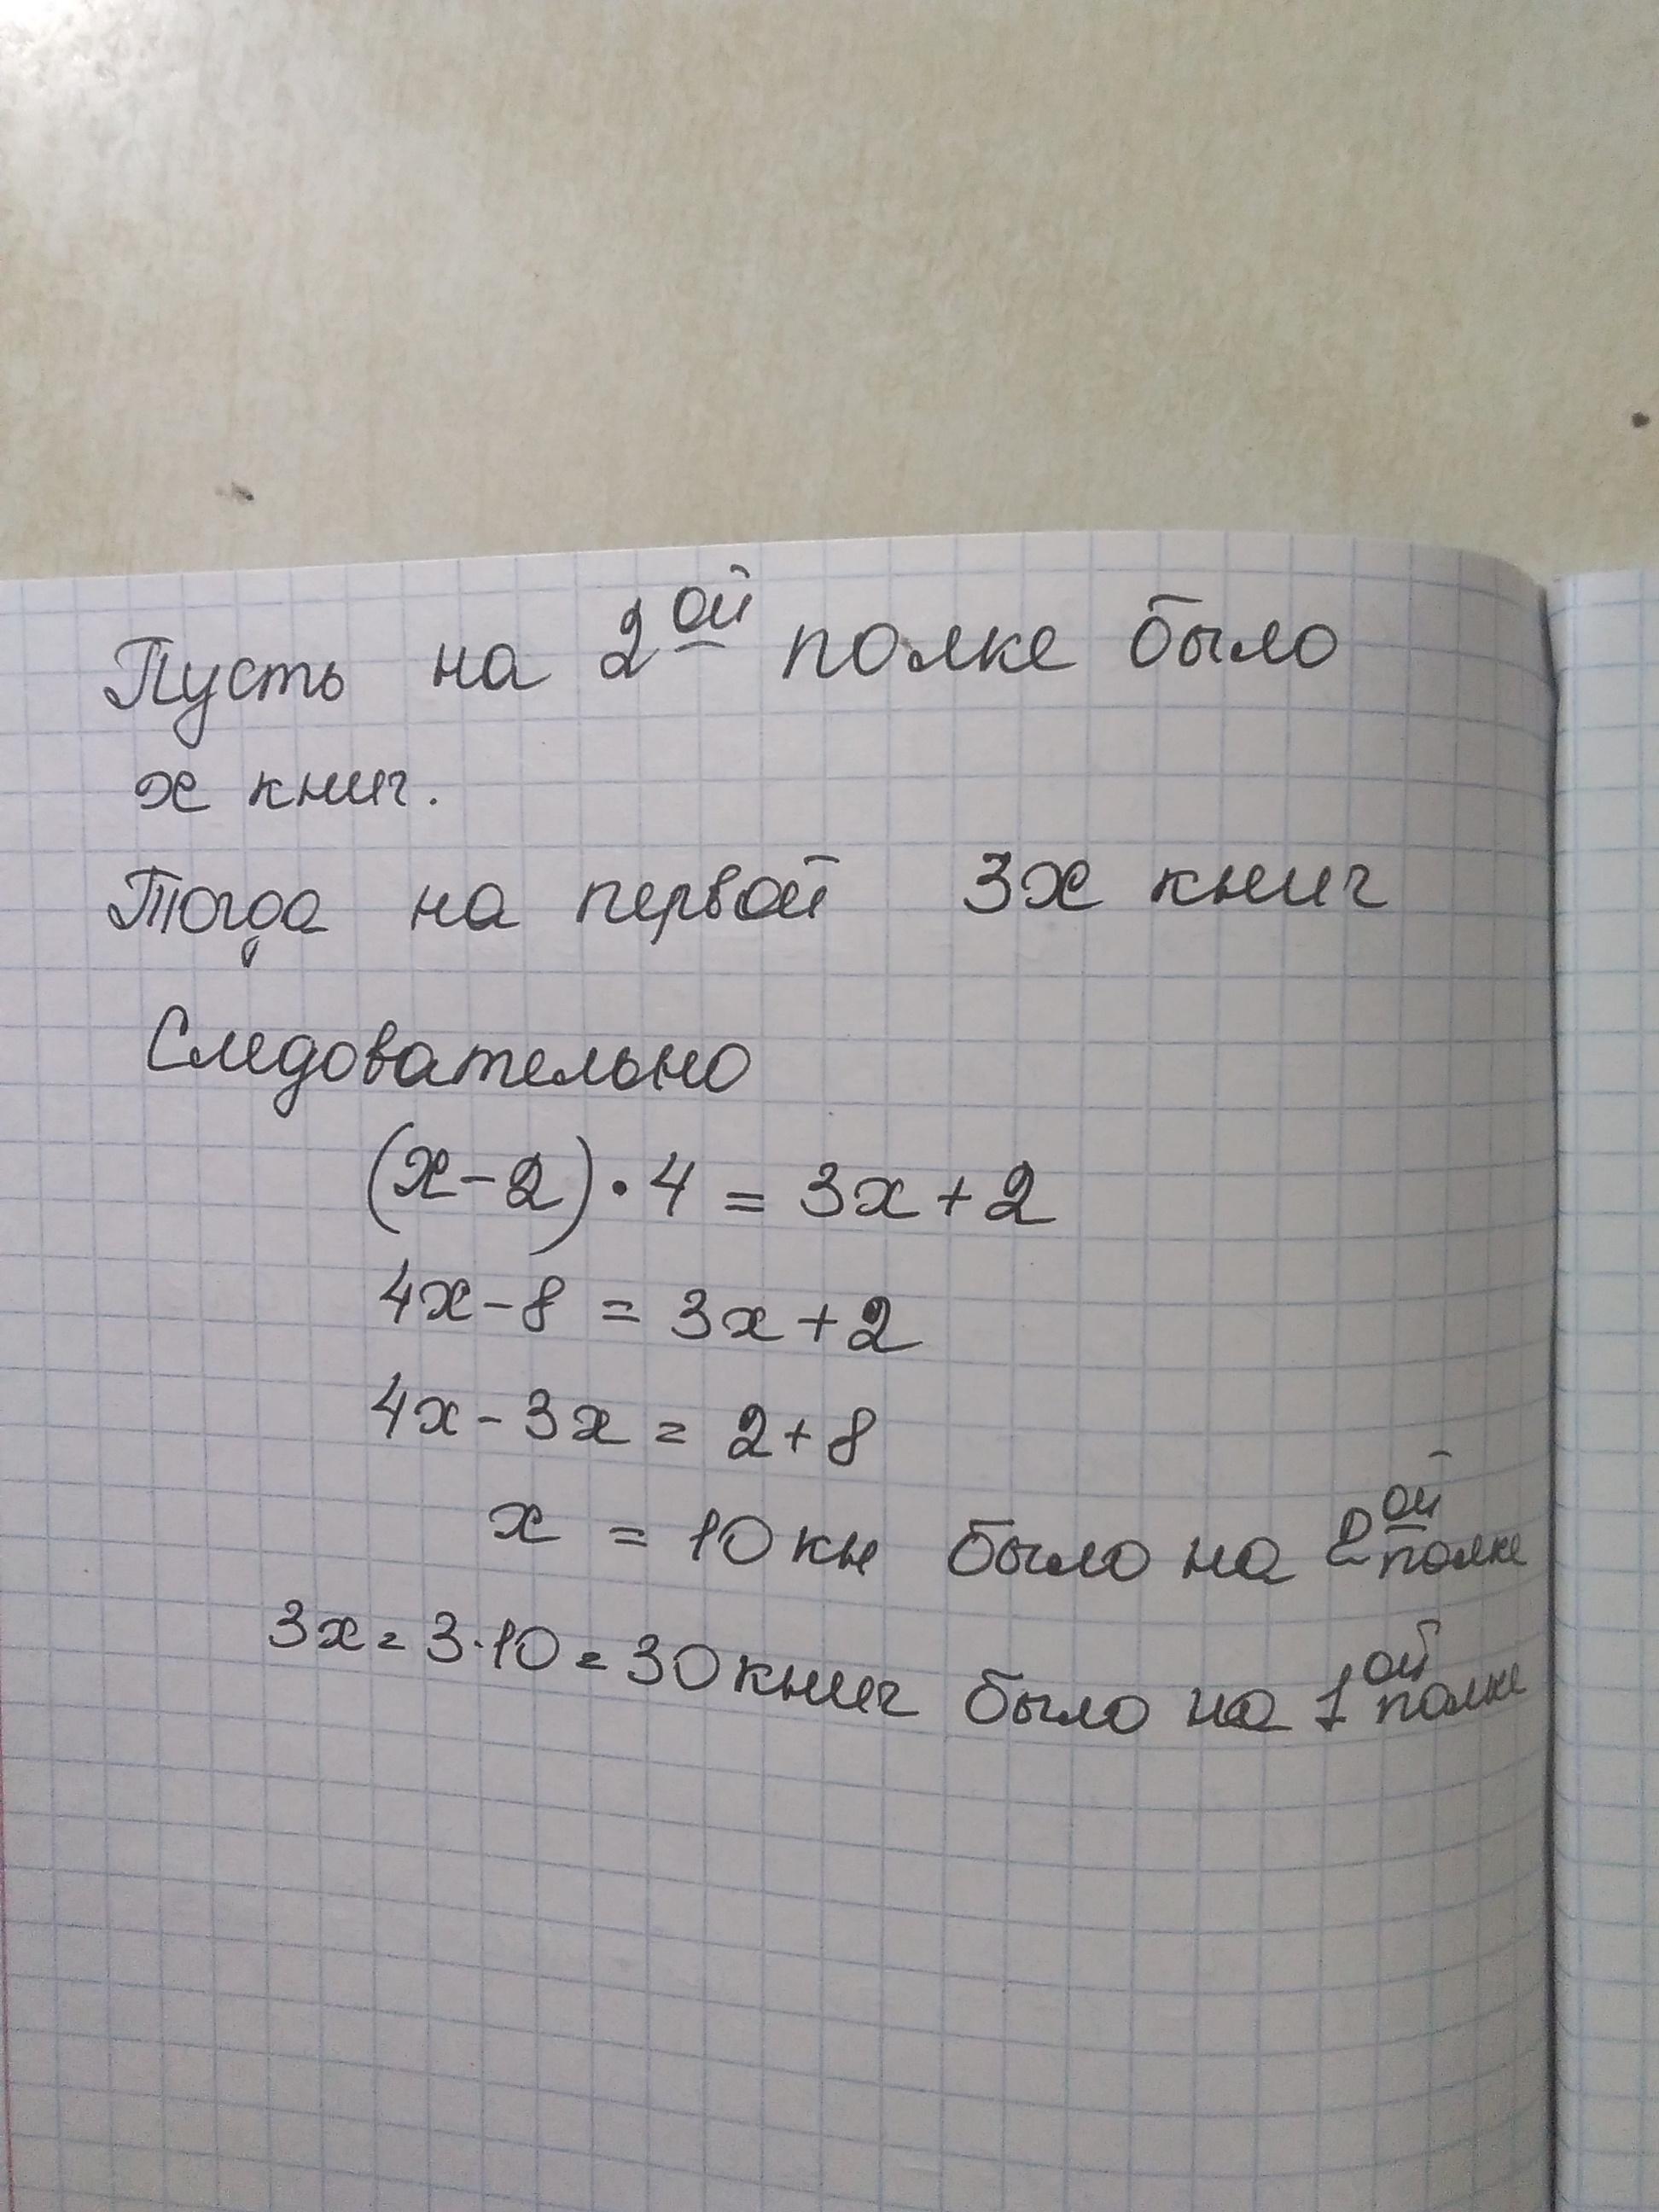 Пусть на 2ой полке было
х книг.
Тогда на первой 3х книг
Следовательно
(х-2)·4 = 3х+2
4х-8 = 3х+2
4х-3х = 2+8
х = 10 кн было на 2ой полке
3х=3·10=30 книг было на 1ой полке